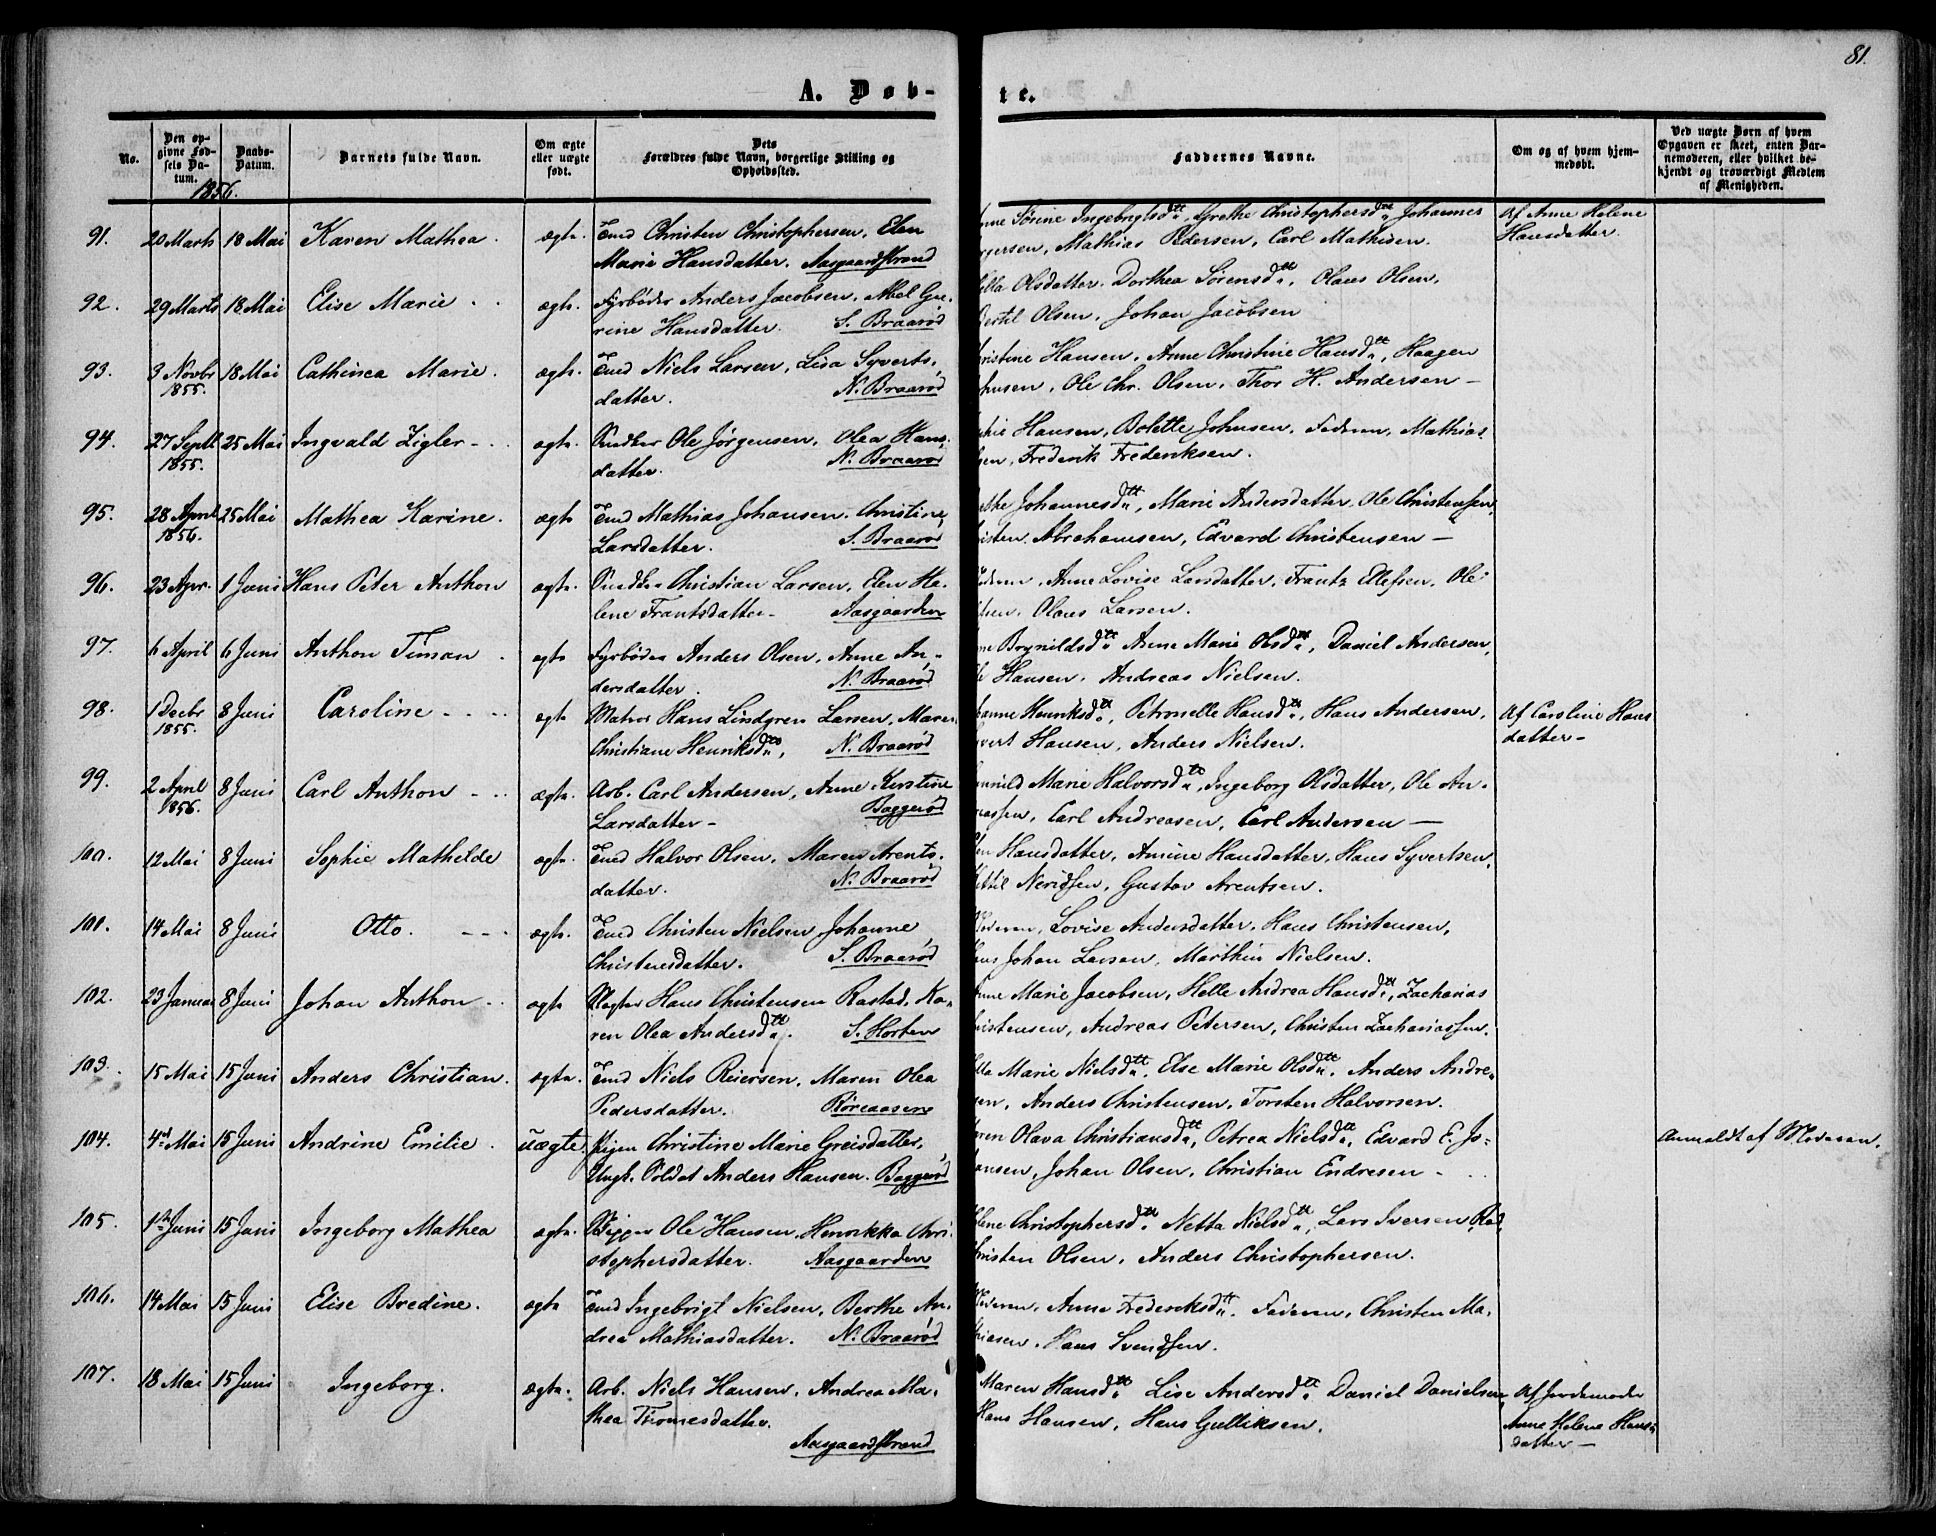 81.
A. Døb-
te.
No.
Den op-
givne Fød-
sels Da-
tum.
Daabs-
Datum.
Barnets fulde Navn.
Om ægte
eller uægte
født.
Dets
Forældres fulde Navn, borgerlige Stilling og
Opholdssted.
Faddernes Navne.
Om og af hvem hjem-
medøbt.
Ved uægte Børn af hvem
Opgaven er skeet, enten Bar-
nemoderen, eller hvilket be-
kjendt og troværdigt Medlem
af Menigheden.
1856.
91. 20 Marts 18 Mai Karen Mathea. ægte. Christen Christophersen, Elen
Marie Hansdatter. Aasgaardstrand
Sørine Ingebrigtsdtt, Grethe Christophersdtt, Johannes
Mathias Pedersen, Carl Mathisen.
Af Anne Helene
Hansdatter.
92. 29 Marts 18 Mai Elise Marie ægte. Fyrbøder Anders Jacobsen, Abel Gu-
rine Hansdatter. S. Braarød
Olsdatter. Dorthea Sørensdtt, Olaus Olsen,
Bertil Olsen, Johan Jacobsen
93. 3 Novbr 18 Mai Cathinca Marie. ægte. Niels Larsen, Lisa Syverts-
1855.
datter. N. Braarød
Hansen, Anne Christine Hansdtt, Haagen
Ole Chr. Olsen, Thor H. Andersen —
94. 27 Septb 25 Mai Ingvald Zigler ægte. Snedker Ole Jørgensen, Olea Hans-
1855.
datter. N. Braarød
Hansen, Bolette Johnsen, Faderen, Mathias
Frederik Frederiksen.
95. 28 April 25 Mai Mathea Karine. ægte. Mathias Johansen. Christine
1856.
Larsdatter. S. Braarød
Johannesdtt, Marie Andersdatter, Ole Christensen,
Abrahamsen, Edvard Christensen —
96. 23 Apr. 1 Juni Hans Peter Anthon ægte. Christian Larsen, Elen He-
lene Frantsdatter. Aasgaarden
Anne Lovise Larsdatter, Frantz Ellefsen, Ole
Olaus Larsen.
97. 6 April 6 Juni Anthon Timan ægte Fyrbøder Anders Olsen, Anne An-
dersdatter. N. Braarød
Brynildsdtt Anne Marie Olsdtt, Daniel Andersen,
Hansen. Andreas Nielsen.
98. 1 Decbr 8 Juni Caroline ægte Matros Hans Lindgren Larsen, Maren
1855.
Christiane Henriksdtt, N. Braarød
Henriksdtt, Petronelle Hansdtt, Hans Andersen,
Hansen, Anders Nielsen.
Af Caroline Hans
datter —
99. 2 April 8 Juni Carl Anthon ægte. Arb. Carl Andersen, Anne Kirstine
1856.
Larsdatter — Baggerød
Marie Halvorsdtt, Ingeborg Olsdatter, Ole An-
Carl Andreasen, Carl Andersen —
100. 12 Mai 8 Juni Sophie Mathilde ægte. Halvor Olsen, Maren Arents-
datter. N. Braarød
Hansdatter, Amine Hansdatter, Hans Syvertsen,
Gustav Arentsen.
101. 14 Mai 8 Juni Otto. ægte. Christen Nielsen, Johanne
Christensdatter. S. Braarød
Lovise Andersdatter, Hans Christensen,
Johan Larsen, Marthin Nielsen.
102. 23 Januar 8 Juni Johan Anthon ægte Slagter Hans Christensen Rastad, Ka-
ren Olea Andersdtt. S. Horten
Marie Jacobsen, Helle Andrea Hansdtt, Zacharias
Andreas Petersen, Christen Zachariassen.
103. 15 Mai 15 Juni Anders Christian. ægte. Niels Reiersen, Maren Olea
Pedersdatter. Røreaasen
Marie Nielsdtt. Else Marie Olsdtt. Anders Andre-
Anders Christensen, Torsten Halvorsen.
104. 4de Mai 15 Juni Andrine Emilie. uægte. Pigen Christine Marie Greisdatter,
Ungk. Soldat Anders Hansen. Baggerød
Olava Christiansdtt, Petrea Nielsdtt, Edvard E. Jo-
hansen, Johan Olsen, Christian Endresen —
Anmeldt af Moderen.
105. 1ste Juni 15 Juni Ingeborg Mathea ægte. Ole Hansen, Henrikka Chri-
stophersdatter. Aasgaarden
Christophersdtt, Netta Nielsdtt, Lars Iversen
Olsen, Anders Christophersen.
106. 14 Mai 15 Juni Elise Bredine. ægte Ingebrigt Nielsen, Berthe An-
drea Mathiasdatter. N. Braarød
Anne Frederiksdtt. Faderen, Christen Ma-
thiasen. Hans Svendsen.
107. 18 Mai 15 Juni Ingeborg. ægte. Arb. Niels Hansen, Andrea Ma-
thea Thomesdatter.
Aasgaardstrand
Maren Hansdtt Lise Andersdtt Daniel Danielsen,
Hans Hansen, Hans Gulliksen.
Af Jordemoder
Anne Helene Hans-
datter —